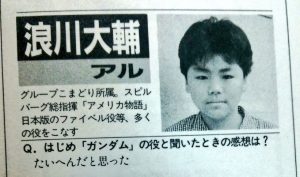 浪川大輔
アル
グループこまどり所属。スピル
バーグ総指揮「アメリカ物語」
日本版のファイベル役等、多く
の役をこなす
Q. はじめ「ガンダム」の役と聞いたときの感想は？
たいへんだと思った